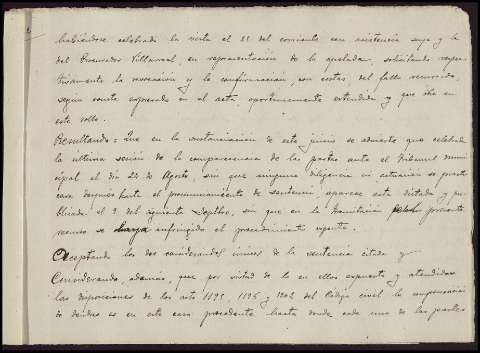 habiéndose celebrado la vista el 25 del corriente con asistencia suya y la
del Procurador Villarreal, en representación de la apelada, solicitando respec-
tivamente la revocación y la confirmación, con costas del fallo
según consta expresado en el acta oportunamente extendida y que obra en
este rollo.
Resultando: Que en la sustanciación de este juicio se advierte que celebrada
la ultima sesión de la comparecencia de las partes ante el Tribunal muni-
cipal el día de Agosto, sin que ninguna diligencia se practi-
cara después hasta el pronunciamiento de sentencia, aparece esta dictada y pu-
blicada el 9 del siguiente Septbre, sin que en la tramitación presente
recurso se haya infringido el procedimiento vigente.
Aceptando los dos considerandos de la sentencia citada y
Considerando, además, que por virtud de lo en ellos expuesto y atendidas
las disposiciones de los arts 1195, 1196 y 1202 del Código civil la compensación
de deudas es en este caso procedente hasta donde cada una de las partes